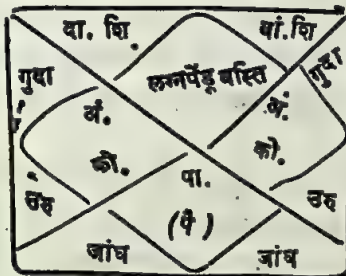 दा. शि
बां. शि
गुदा
लग्नपेंडू बस्ति
गुदा
अं.
अं.
को.
को.
पा.
उरु
(पै)
उरु
जांघ
जांघ